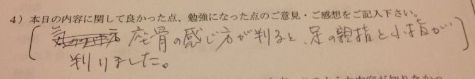 4）本日の内容に関して良かった点、勉強になった点のご意見・ご感想をご記入下さい。
座骨の感じ方が判ると、足の親指と小指が
判りました。